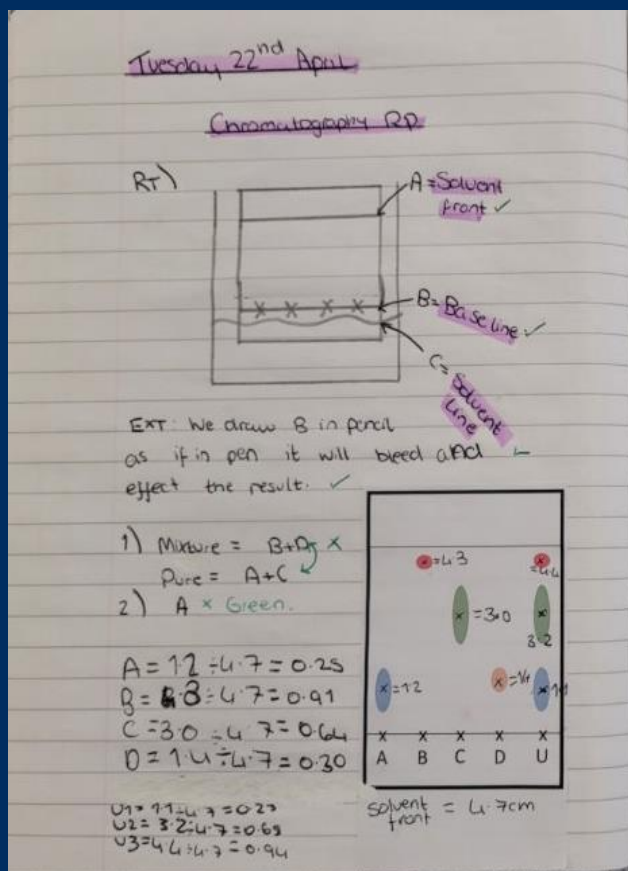 Tuesday 22nd April
Chromatography RP
RT)
A = Solvent
front ✓
B = Base line ✓
C = Solvent
Line
EXT: We draw B in pencil
as if in pen it will bleed and
effect the result. ✓
1) Mixture = B+D x
Pure = A+C
2) A x Green.
A = 1.2 ÷ 4.7 = 0.25
B = 4.3 ÷ 4.7 = 0.91
C = 3.0 ÷ 4.7 = 0.64
D = 1.4 ÷ 4.7 = 0.30
U1 = 1.1 ÷ 4.7 = 0.23
U2 = 3.2 ÷ 4.7 = 0.68
U3 = 4.4 ÷ 4.7 = 0.94
=4.3
=4.4
=3.0
3.2
=1.2
=1.4
1.1
A B C D U
solvent
front = 4.7cm